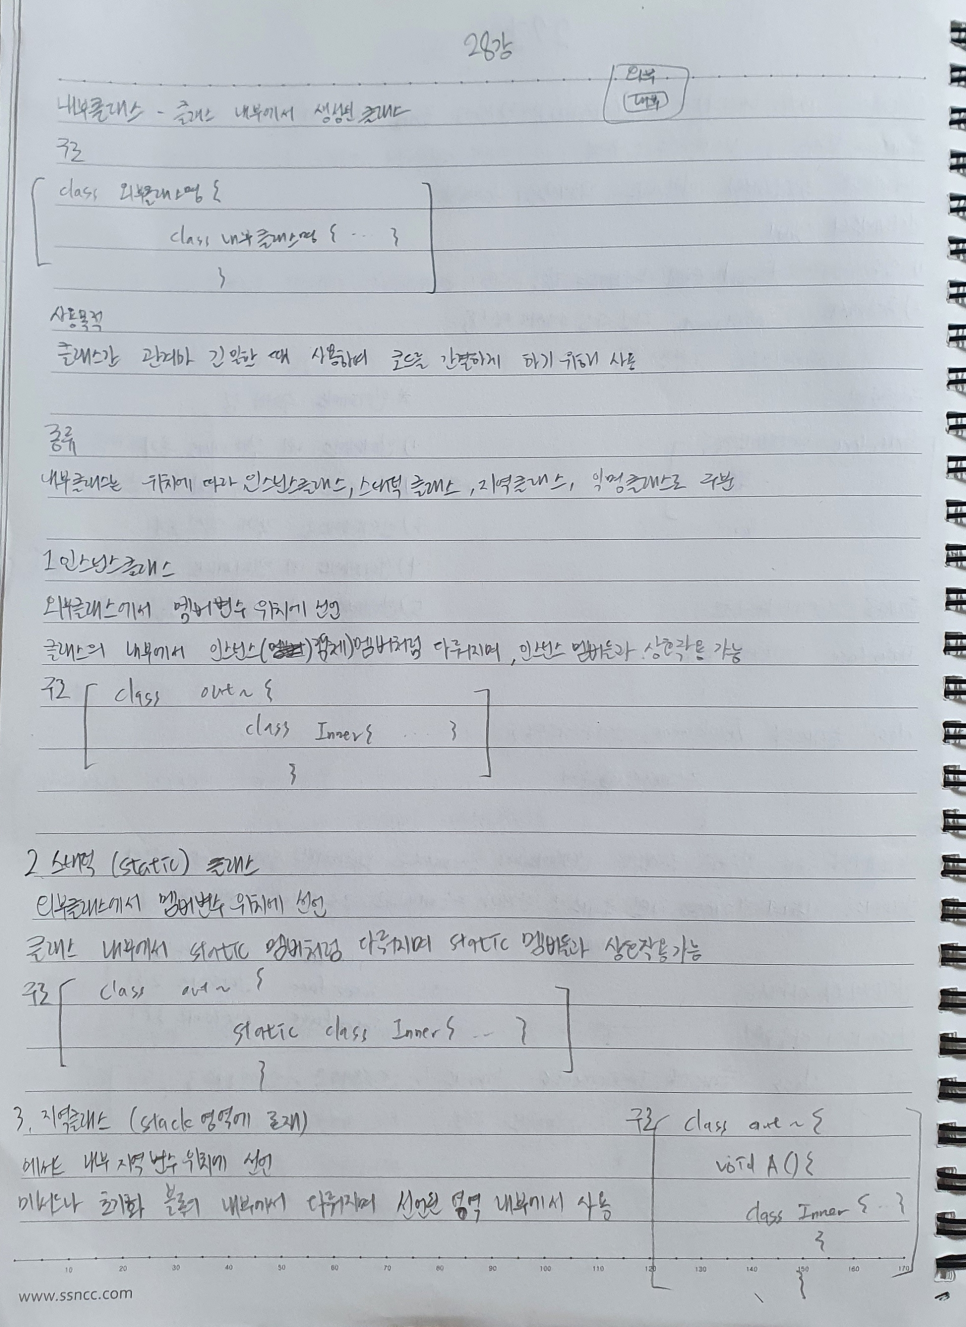 28강
외부
내부
내부클래스 - 클래스 내부에서 생성된 클래스
구조
class 외부클래스명 {
class 내부클래스명 { ... }
}
사용목적
클래스간 관계가 긴밀한 때 사용하며 코드를 간결하게 하기 위해 사용
종류
내부클래스는 위치에 따라 인스턴스클래스, 스태틱 클래스, 지역클래스, 익명클래스로 구분
1 인스턴스클래스
외부클래스에서 멤버변수 위치에 선언
클래스의 내부에서 인스턴스(객체)멤버처럼 다뤄지며, 인스턴스 멤버들과 상호작용 가능
구조 class out~ {
class Inner{ ... }
}
2 스태틱 (static) 클래스
외부클래스에서 멤버변수 위치에 선언
클래스 내부에서 static 멤버처럼 다뤄지며 static 멤버들과 상호작용가능
구조 class out~ {
static class Inner{ ... }
}
3. 지역클래스 (stack 영역에 존재)
내부 지역변수 위치에 선언
메서드나 초기화 블록의 내부에서 다뤄지며 선언된 영역 내부에서 사용
구조 class out~ {
void A(){
class Inner { ... }
}
}
10 20 30 40 50 60 70 80 90 100 110 120 130 140 150 160 170
www.ssncc.com